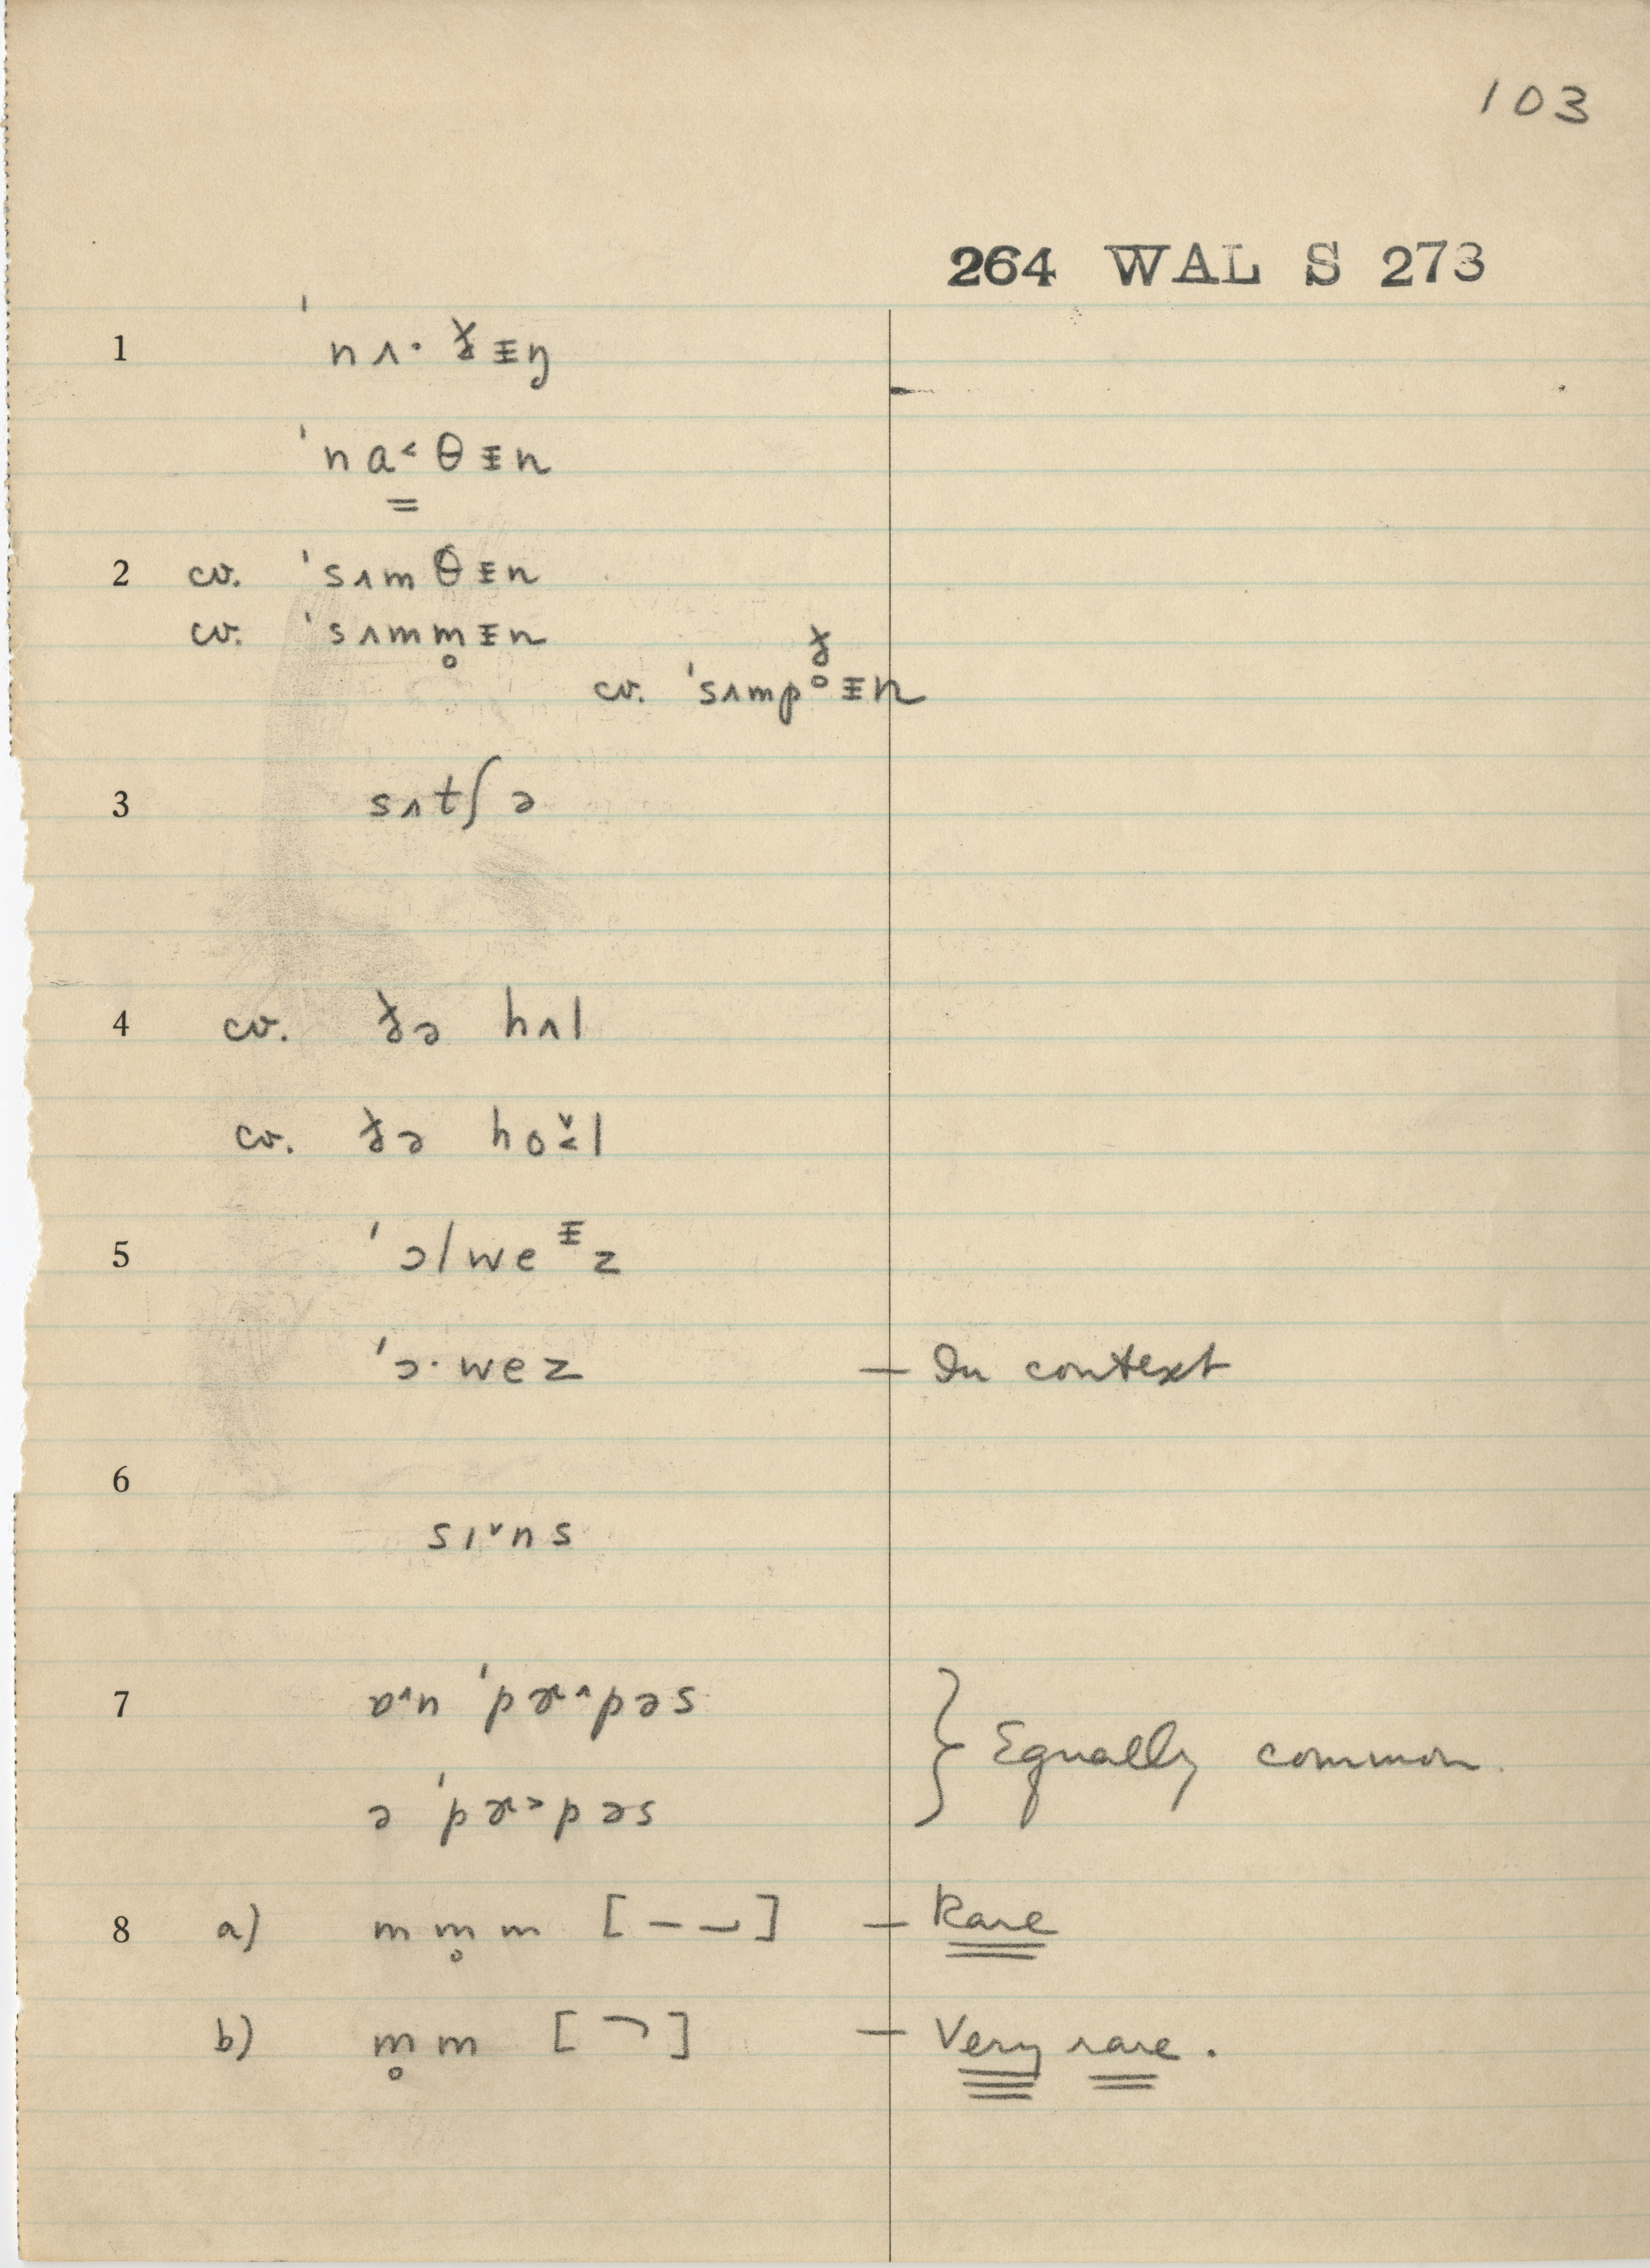 103
264 WAL S 273
1 ˈnʌ· ɣᵻŋ
ˈna˂θᵻn
2 cv. ˈsʌmθᵻn
cv. ˈsʌmm̥ᵻn
cv. ˈsʌmpᵻn
3 sʌtʃə
4 cv. hʌl
cv. ho˂̌l
5 ˈɔlweᵻz
ˈɔ·wez
— In context
6 sɪˇns
7 ɒ˄n ˈpɝ˄pəs
ə ˈpɝ˃pəs
} Equally common.
8 a) m m̥ m [– –] — Rare
b) m̥ m [ ¬ ] — Very rare.